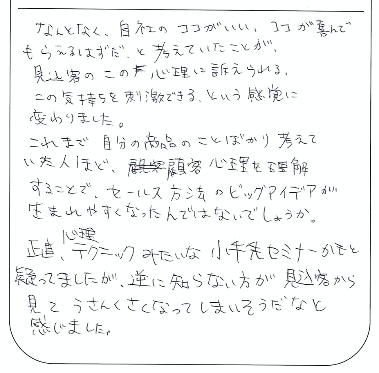 なんとなく、自社の ココがいい、ココが喜んで
もらえるはずだ、と 考えていたことが、
見込客の この 心理に 訴えられる、
この気持ちを 刺激できる、という 感覚に
変わりました。
これまで 自分の商品のことばかり 考えて
いた人ほど、顧客 心理を理解
することで、セールス方法の ビッグアイデアが
生まれやすくなったんではないでしょうか。
正直、心理テクニック みたいな 小手先セミナーかもと
疑ってましたが、逆に 知らない方が 見込客から
見て うさんくさくなってしまいそうだなと
感じました。